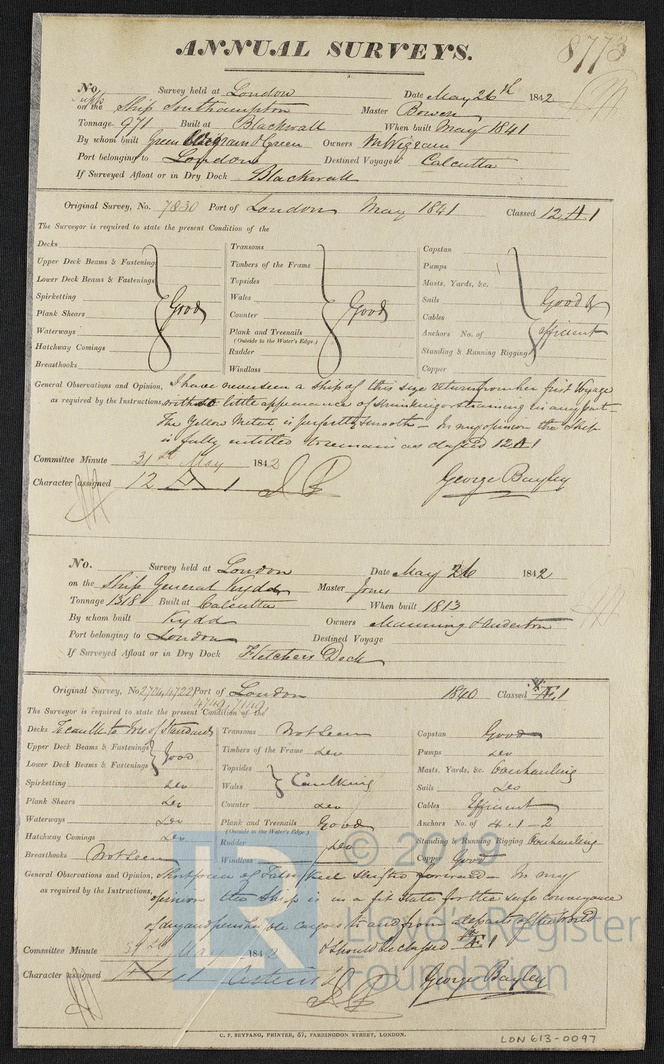 ANNUAL SURVEYS.
8773
No. Survey held at London Date May 26th 1842
on the Ship Southampton Master Bowen
Tonnage 971 Built at Blackwall When built May 1841
By whom built Green Wigram & Green Owners M Wigram
Port belonging to London Destined Voyage Calcutta
If Surveyed Afloat or in Dry Dock Blackwall
Original Survey, No. 7830 Port of London May 1841 Classed 12 A 1
The Surveyor is required to state the present Condition of the
Decks Transoms Capstan
Upper Deck Beams & Fastenings Timbers of the Frame Pumps
Lower Deck Beams & Fastenings Topsides Masts, Yards, &c.
Spirketting Good Wales Good Sails Good &
Plank Shears Counter Cables efficient
Waterways Plank and Treenails Anchors No. of
(Outside to the Water's Edge.)
Hatchway Comings Rudder Standing & Running Rigging
Breasthooks Windlass Copper
General Observations and Opinion, I have never seen a ship of this size return from her first Voyage
as required by the Instructions, with so little appearance of shrinking or straining in any part.
The Yellow Metal is perfectly smooth - In my opinion the Ship
is fully entitled to remain as classed 12 A 1
Committee Minute 31st May 1842
Character assigned 12 A 1 George Bayley
No. Survey held at London Date May 26 1842
on the Ship General Kydd Master Jones
Tonnage 1318 Built at Calcutta When built 1813
By whom built Kydd Owners Manning & Anderton
Port belonging to London Destined Voyage
If Surveyed Afloat or in Dry Dock Fletchers Dock
Original Survey, No. 2704, 4722 Port of London 1840 Classed Æ 1
4719, 7119
The Surveyor is required to state the present Condition of the
Decks To caulk to Iron of Standards Transoms Not seen Capstan Good
Upper Deck Beams & Fastenings Good Timbers of the Frame Do Pumps Do
Lower Deck Beams & Fastenings Topsides Masts, Yards, &c. Overhauling
Spirketting Do Wales Caulking Sails Do
Plank Shears Do Counter Do Cables Efficient
Waterways Do Plank and Treenails Good Anchors No. of 4 . 1 - 2
(Outside to the Water's Edge.)
Hatchway Comings Do Rudder Do Standing & Running Rigging Overhauling
Breasthooks Not seen Windlass Copper Good
General Observations and Opinion, Short piece of False Keel shifted forward - In my
as required by the Instructions, opinion the Ship is in a fit state for the safe conveyance
of dry and perishable cargoes to and from all parts of the World
& should be classed Æ 1
Committee Minute 31st May 1842
Character assigned George Bayley
C. F. SEYFANG, PRINTER, 57, FARRINGDON STREET, LONDON.
LON 613-0097
LR
© 2018
Lloyd's Register
Foundation